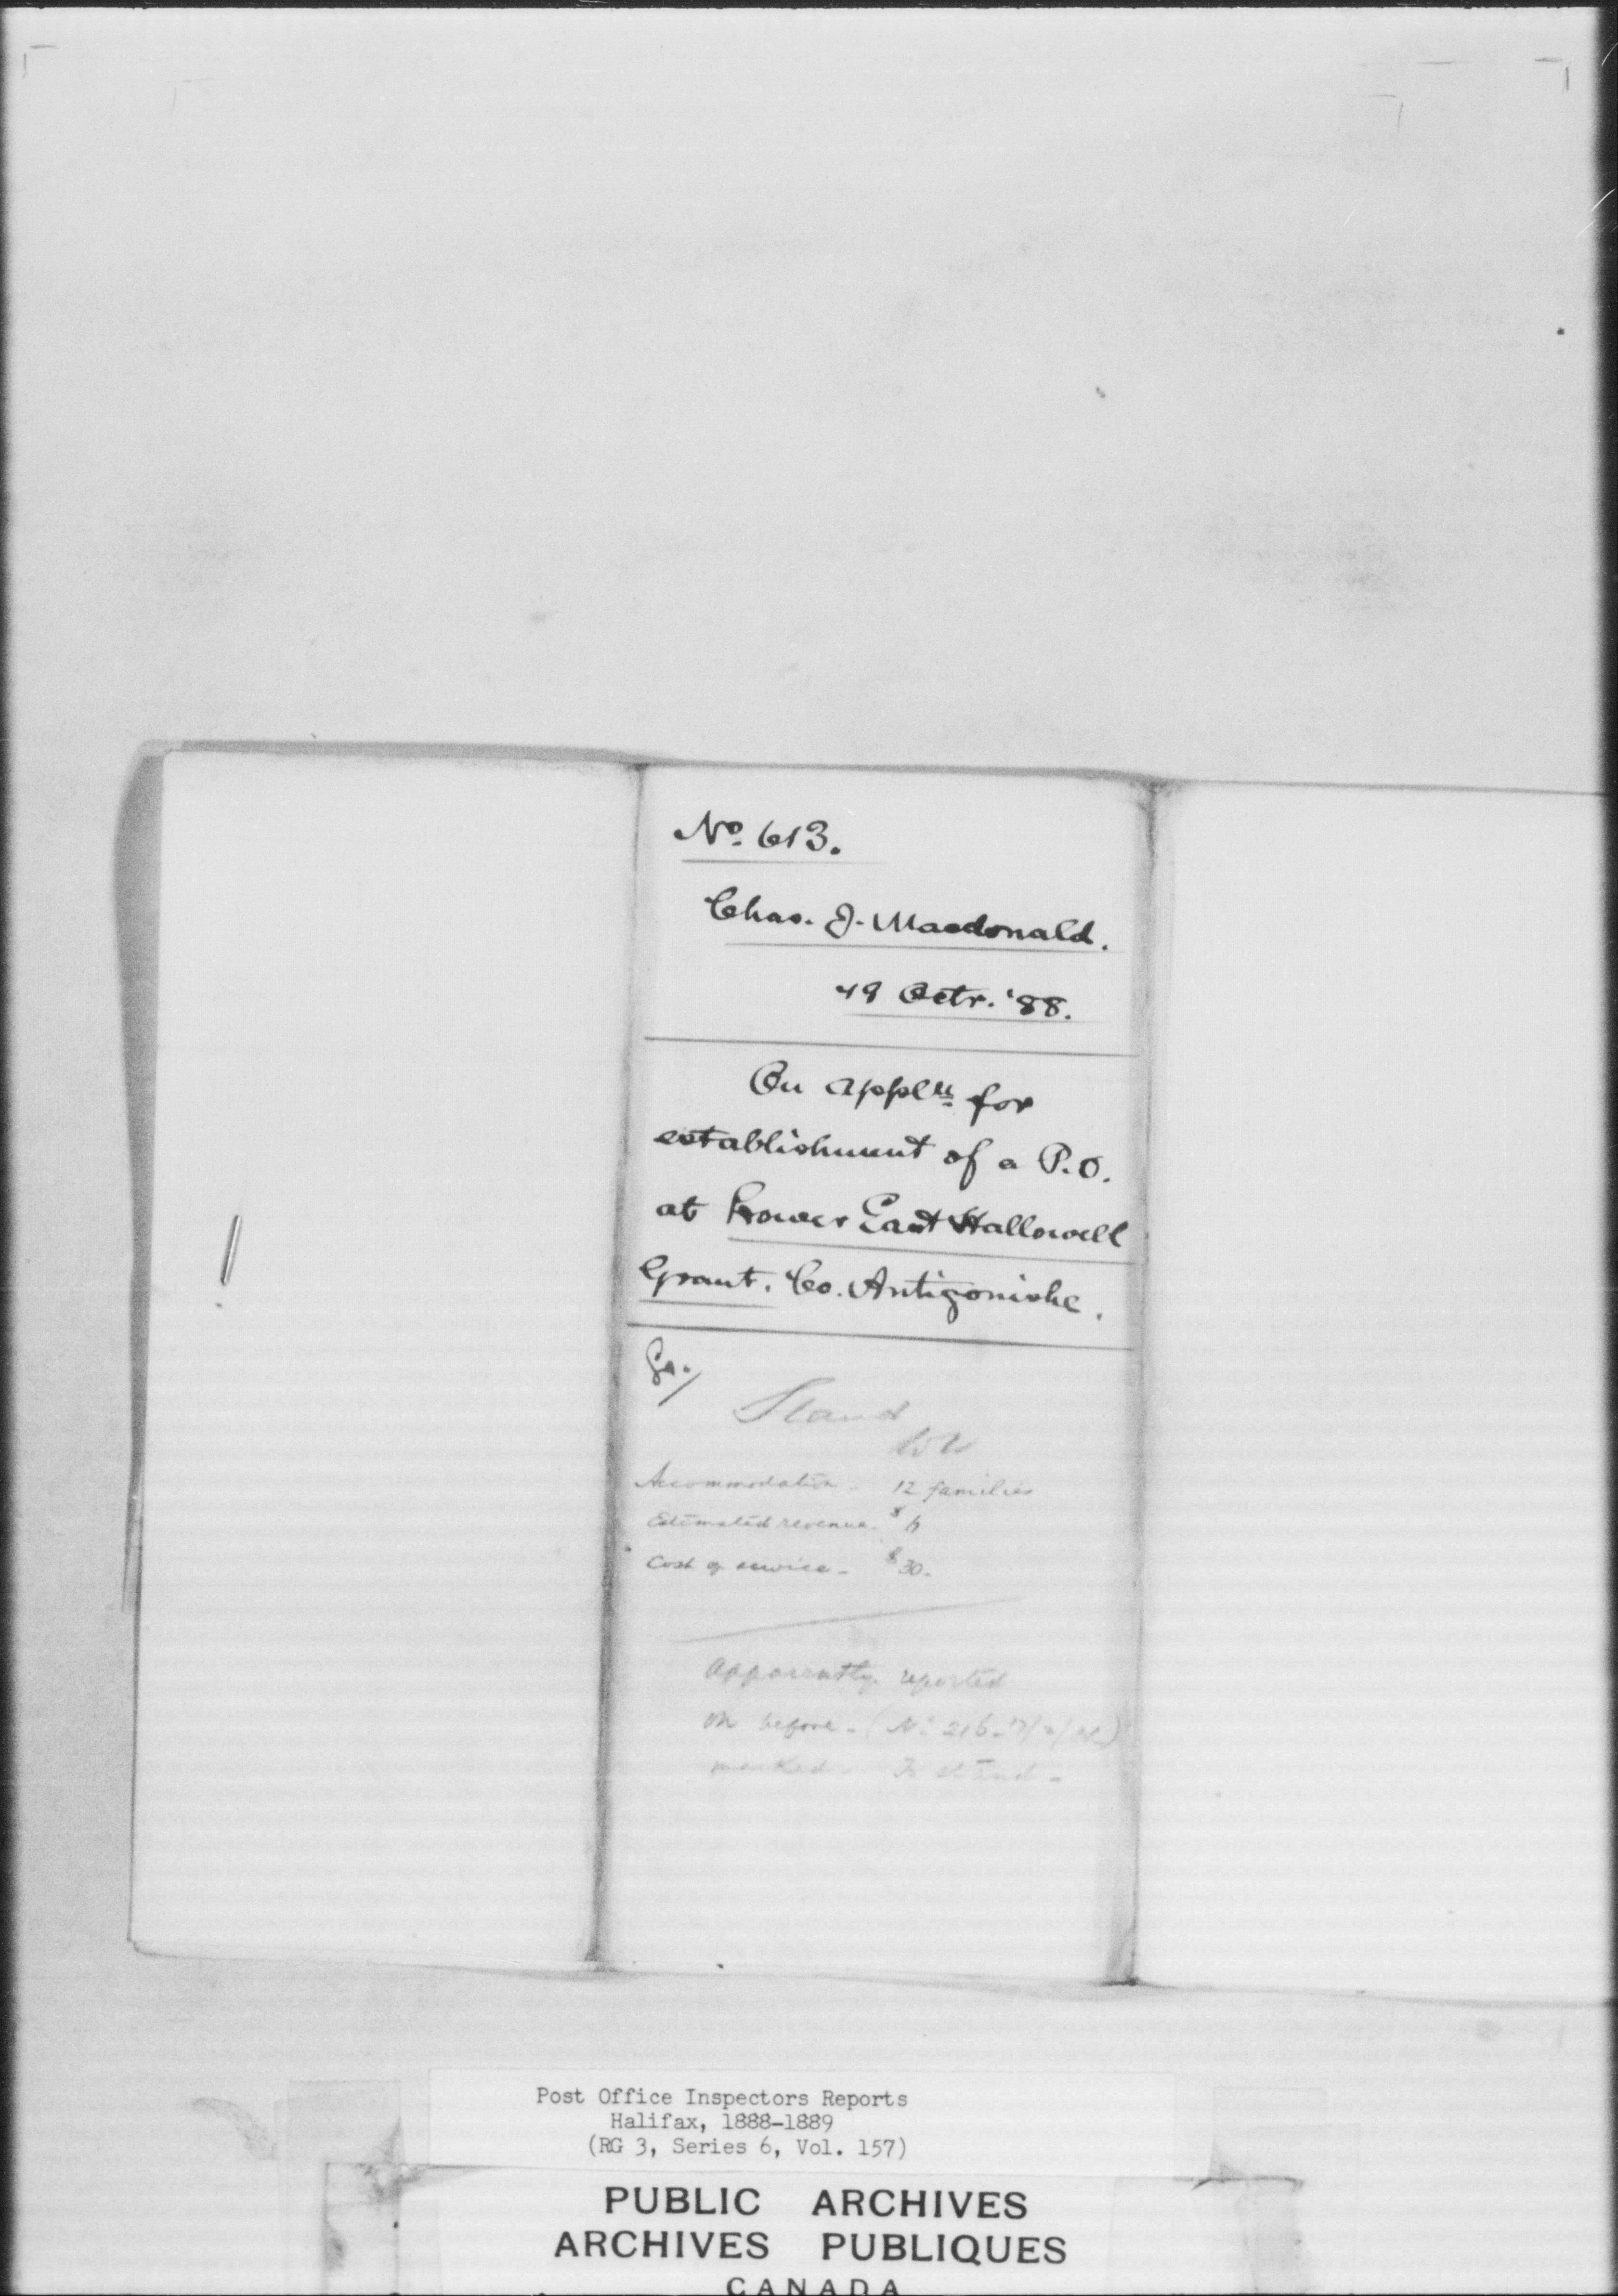 No. 613.
Chas. J. Macdonald.
19 Octr. '88.
On appln for
establishment of a P.O.
at Lower East Hallowell
Grant. Co. Antigonishe.
Stand
Accommodation - 12 families
Estimated revenue. $6
Cost of service - $30.
Apparently reported
on before - (No 216
marked - To stand -
Post Office Inspectors Reports
Halifax, 1888-1889
(RG 3, Series 6, Vol. 157)
PUBLIC ARCHIVES
ARCHIVES PUBLIQUES
CANADA